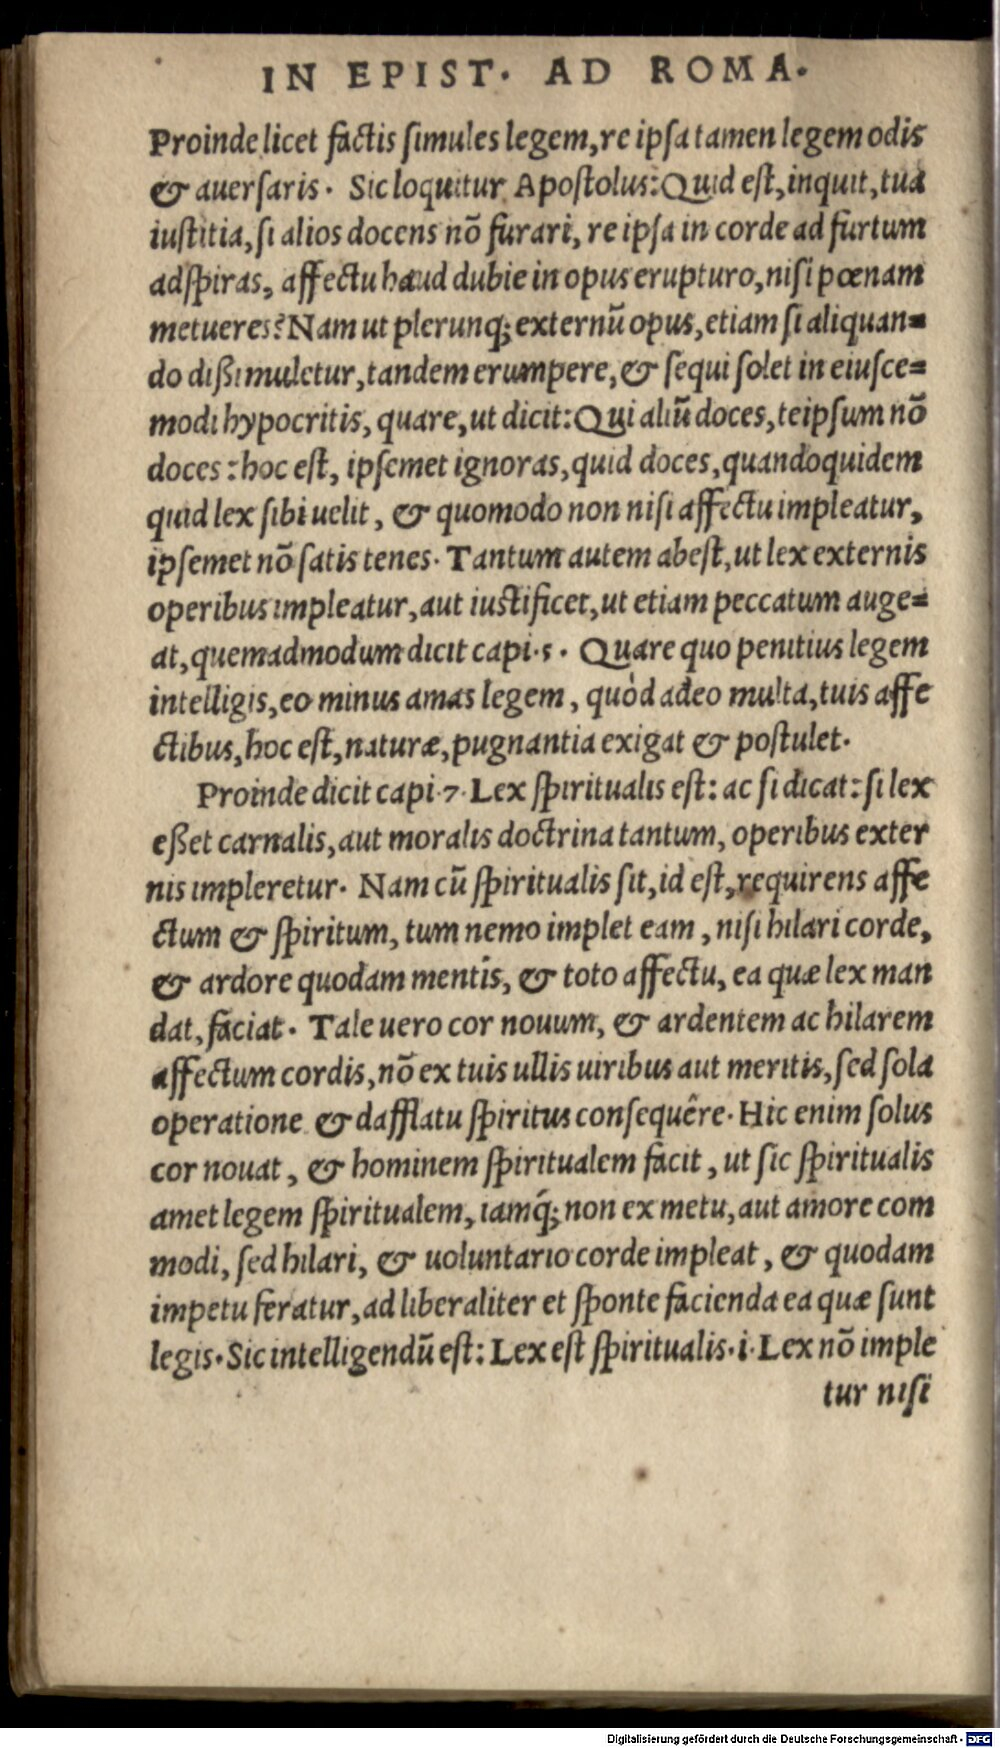 IN EPIST. AD ROMA.
Proinde licet factis simules legem, re ipsa tamen legem odis
& auersaris. Sic loquitur Apostolus: Quid est, inquit, tua
iustitia, si alios docens nõ furari, re ipsa in corde ad furtum
adspiras, affectu haud dubie in opus erupturo, nisi pœnam
metueres? Nam ut plerunq; externũ opus, etiam si aliquan=
do dißimuletur, tandem erumpere, & sequi solet in eiusce=
modi hypocritis, quare, ut dicit: Qui aliũ doces, teipsum nõ
doces: hoc est, ipsemet ignoras, quid doces, quandoquidem
quid lex sibi uelit, & quomodo non nisi affectu impleatur,
ipsemet nõ satis tenes. Tantum autem abest, ut lex externis
operibus impleatur, aut iustificet, ut etiam peccatum auge=
at, quemadmodum dicit capi.5. Quare quo penitius legem
intelligis, eo minus amas legem, quòd adeo multa, tuis affe
ctibus, hoc est, naturæ, pugnantia exigat & postulet.
Proinde dicit capi.7. Lex spiritualis est: ac si dicat: si lex
eßet carnalis, aut moralis doctrina tantum, operibus exter
nis impleretur. Nam cũ spiritualis sit, id est, requirens affe
ctum & spiritum, tum nemo implet eam, nisi hilari corde,
& ardore quodam mentis, & toto affectu, ea quæ lex man
dat, faciat. Tale uero cor nouum, & ardentem ac hilarem
affectum cordis, nõ ex tuis ullis uiribus aut meritis, sed sola
operatione & dafflatu spiritus consequêre. Hic enim solus
cor nouat, & hominem spiritualem facit, ut sic spiritualis
amet legem spiritualem, iamq́; non ex metu, aut amore com
modi, sed hilari, & uoluntario corde impleat, & quodam
impetu feratur, ad liberaliter et sponte facienda ea quæ sunt
legis. Sic intelligendũ est: Lex est spiritualis.i. Lex nõ imple
tur nisi
Digitalisierung gefördert durch die Deutsche Forschungsgemeinschaft - DFG